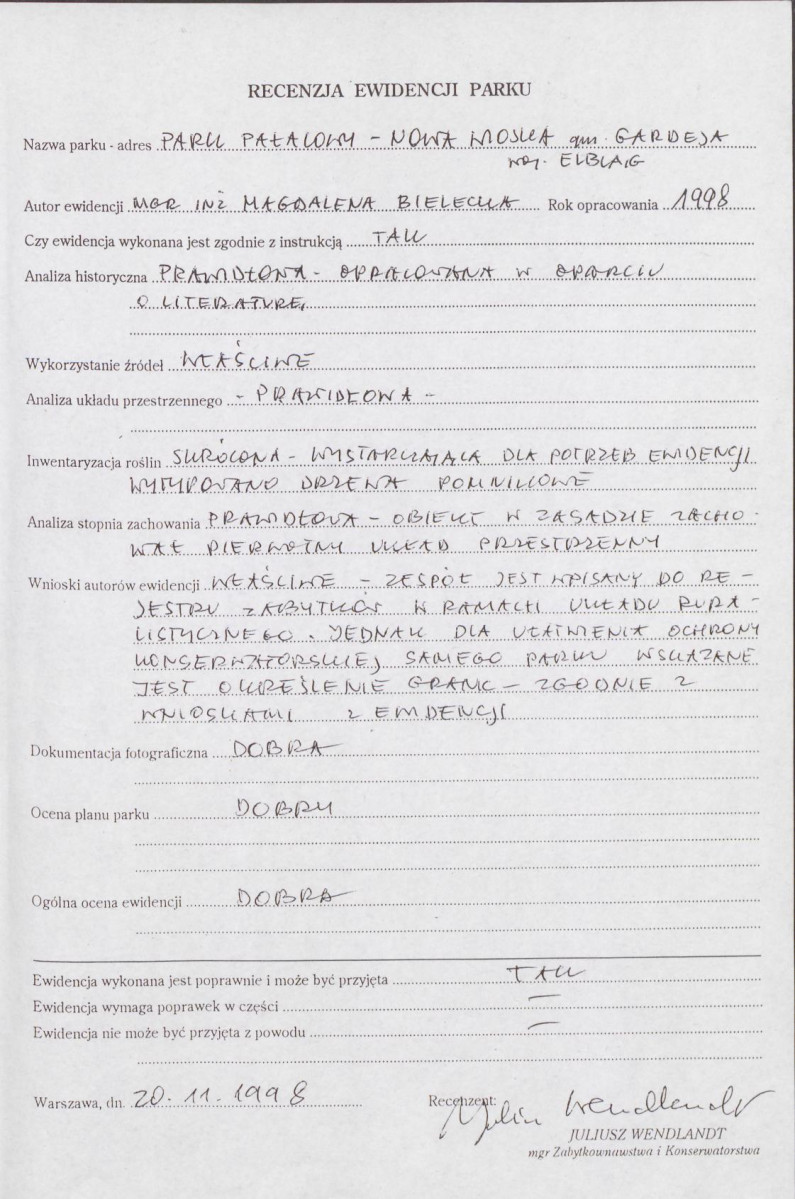 RECENZJA EWIDENCJI PARKU
Nazwa parku - adres PARK PAŁACOWY - NOWA WIOSKA gm. GARDEJA
woj. ELBLĄG
Autor ewidencji MGR INŻ MAGDALENA BIELECKA Rok opracowania 1998
Czy ewidencja wykonana jest zgodnie z instrukcją TAK
Analiza historyczna PRAWIDŁOWA - OPRACOWANA W OPARCIU
O LITERATURĘ
Wykorzystanie źródeł WŁAŚCIWE
Analiza układu przestrzennego - PRAWIDŁOWA -
Inwentaryzacja roślin SKRÓCONA - WYSTARCZAJĄCA DLA POTRZEB EWIDENCJI
WYTYPOWANO DRZEWA POMNIKOWE
Analiza stopnia zachowania PRAWIDŁOWA - OBIEKT W ZASADZIE ZACHO-
WAŁ PIERWOTNY UKŁAD PRZESTRZENNY
Wnioski autorów ewidencji WŁAŚCIWE - ZESPÓŁ JEST WPISANY DO RE-
JESTRU ZABYTKÓW W RAMACH UKŁADU RURA-
LISTYCZNEGO. JEDNAK DLA UŁATWIENIA OCHRONY
KONSERWATORSKIEJ SAMEGO PARKU WSKAZANE
JEST OKREŚLENIE GRANIC - ZGODNIE Z
WNIOSKAMI Z EWIDENCJI
Dokumentacja fotograficzna DOBRA
Ocena planu parku DOBRY
Ogólna ocena ewidencji DOBRA
Ewidencja wykonana jest poprawnie i może być przyjęta TAK
Ewidencja wymaga poprawek w części —
Ewidencja nie może być przyjęta z powodu —
Warszawa, dn. 20.11.1998 Recenzent:
Juliusz Wendlandt
JULIUSZ WENDLANDT
mgr Zabytkownawstwa i Konserwatorstwa